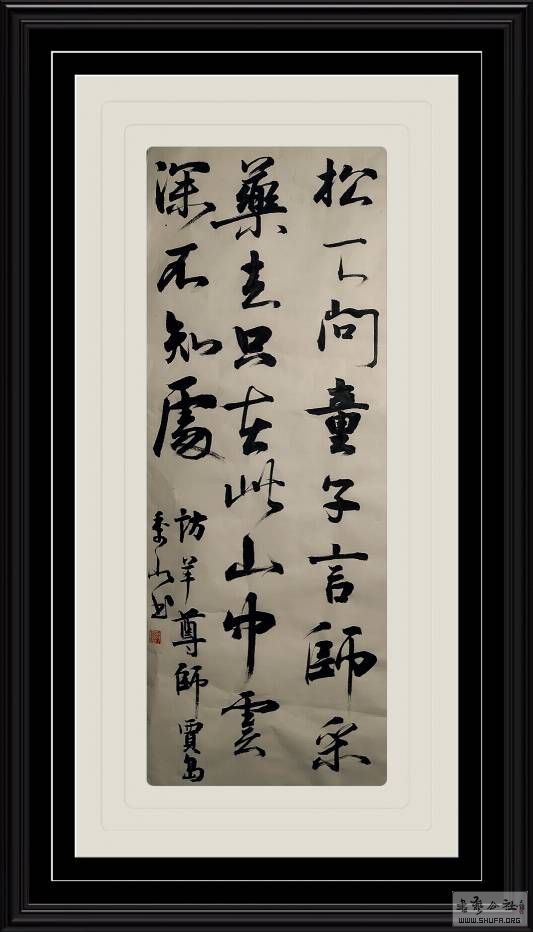 松下問童子言師采
藥去只在此山中雲
深不知處
訪羊尊師 賈島
书
书艺公社
WWW.SHUFA.ORG